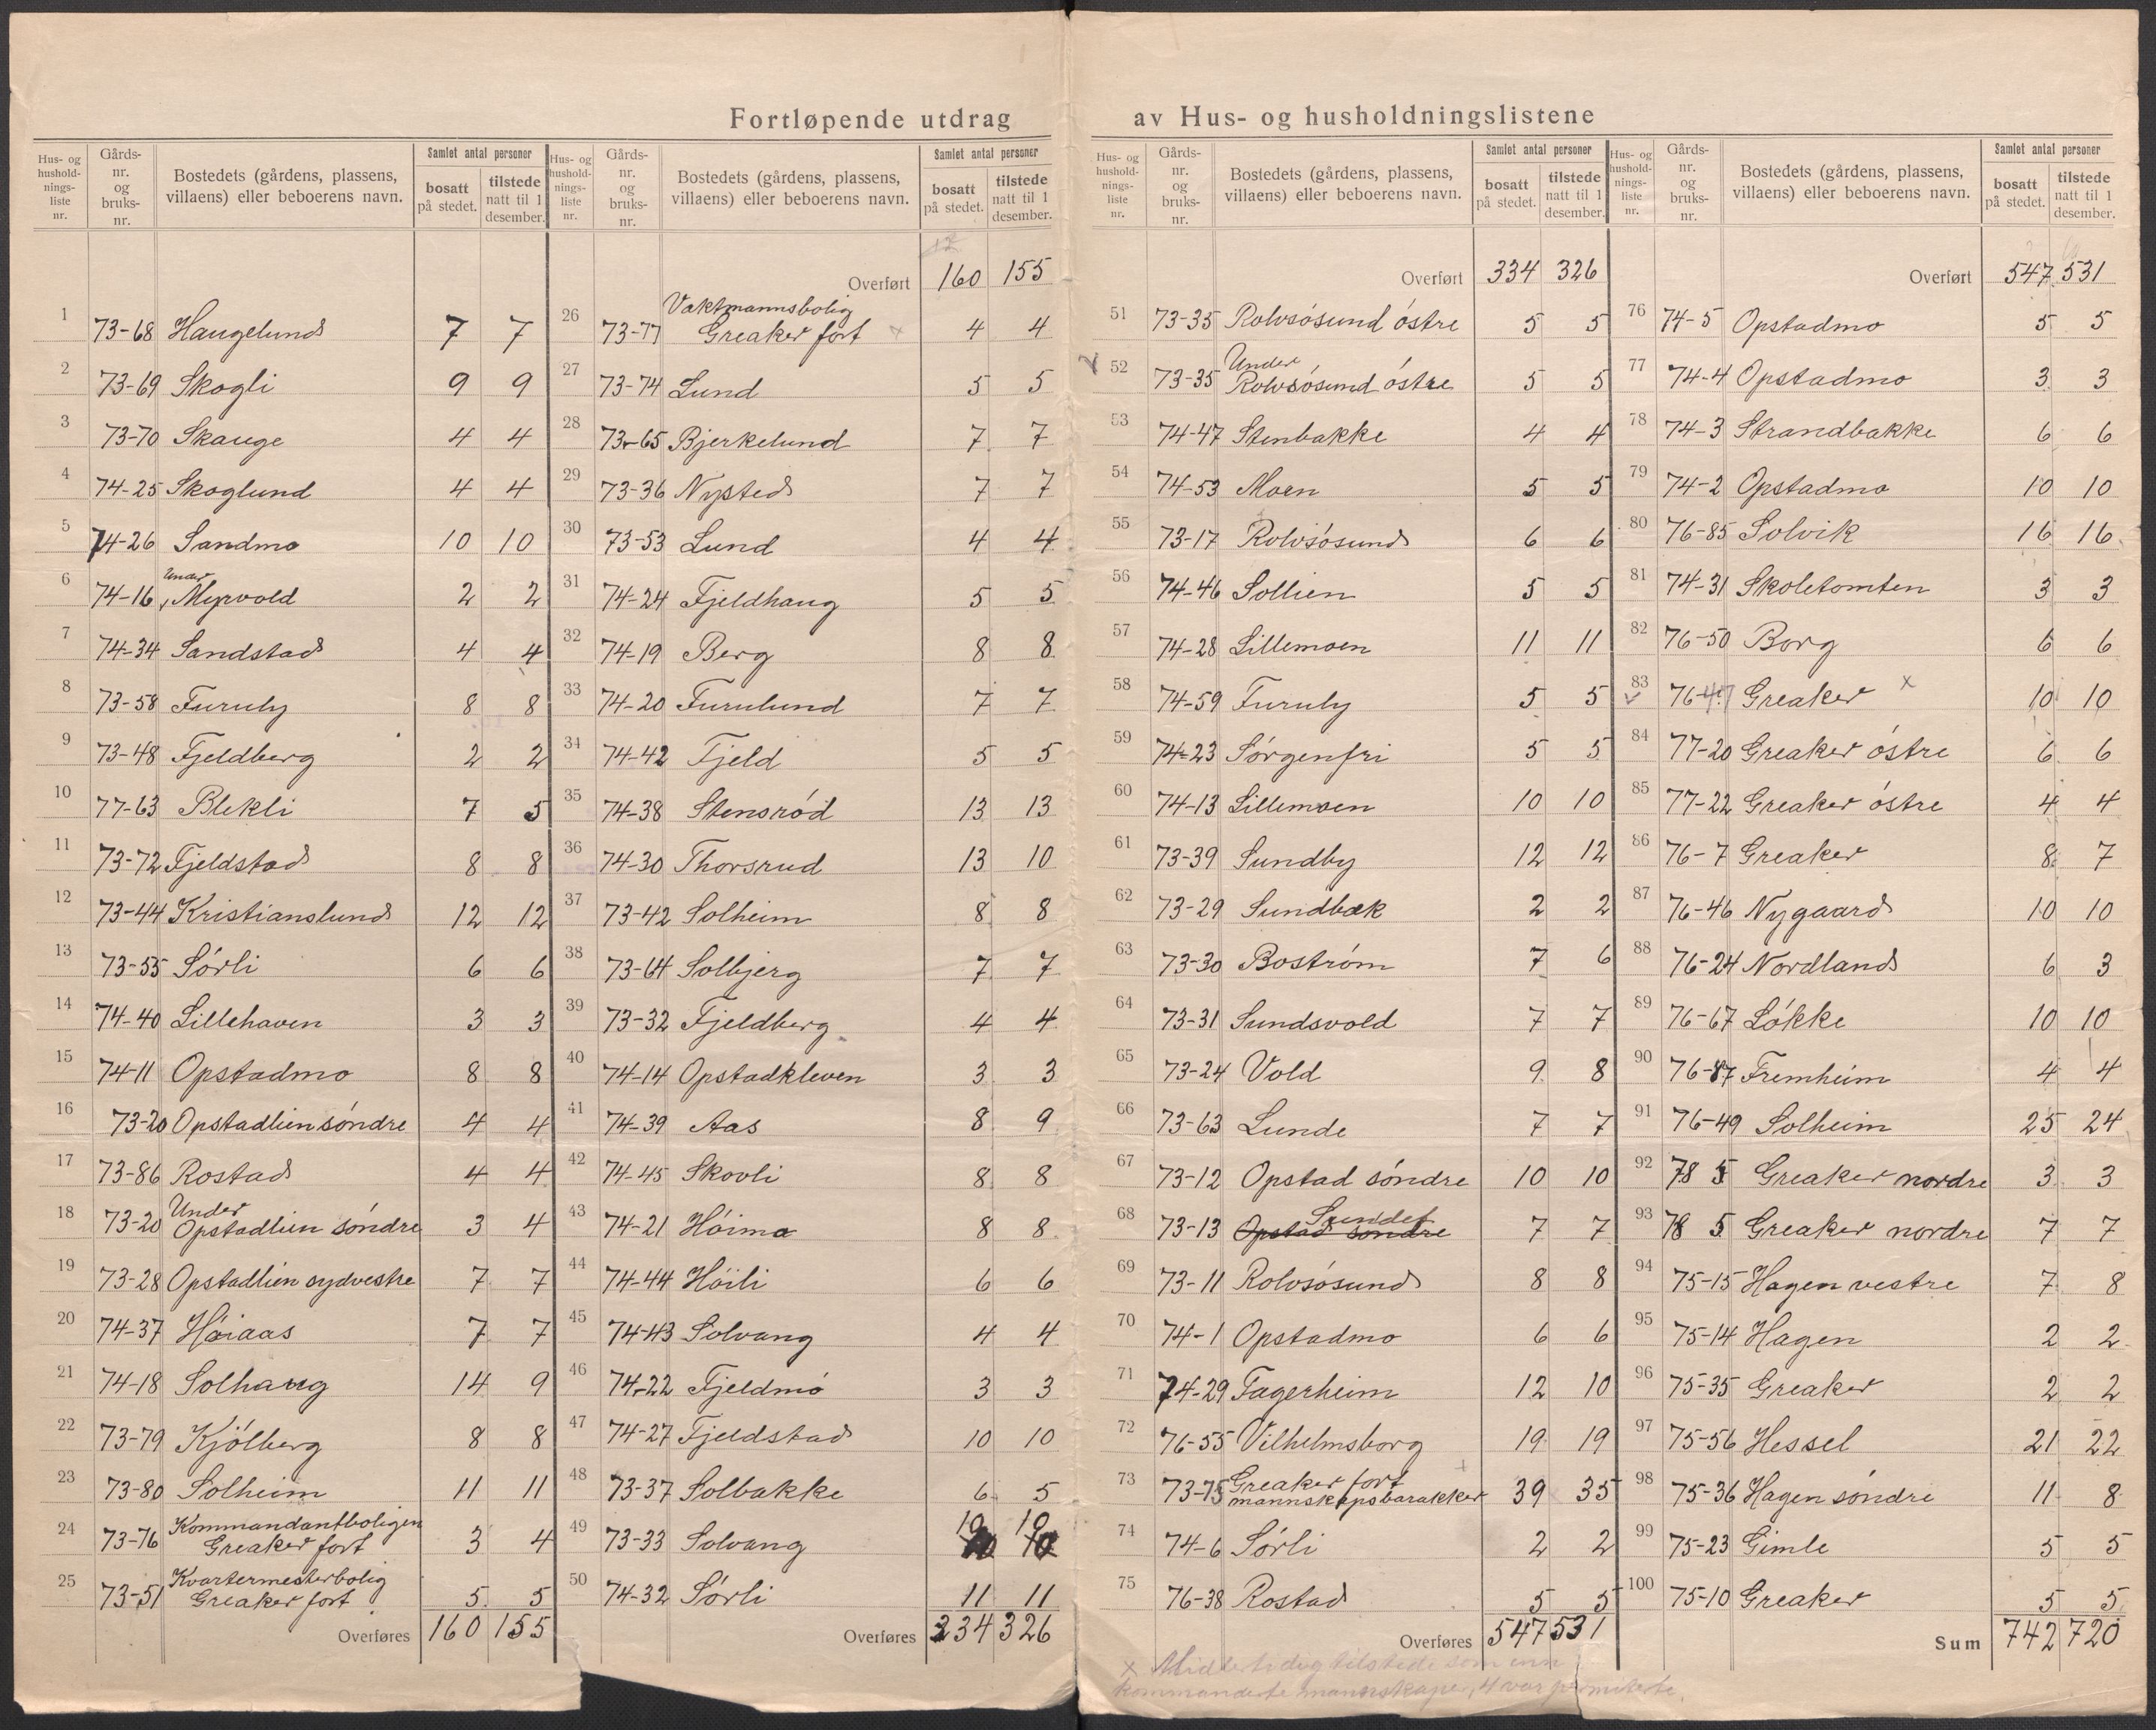 Fortløpende utdrag av Hus- og husholdningslistene
Hus- og husholdnings-liste nr. Gårds-nr. og bruks-nr. Bostedets (gårdens, plassens, villaens) eller beboerens navn. Samlet antal personer bosatt på stedet. tilstede natt til 1 desember.
1 73-68 Haugelund 7 7
2 73-69 Skogli 9 9
3 73-70 Skauge 4 4
4 74-25 Skoglund 4 4
5 74-26 Sandmo 10 10
6 74-16 Under Myrvold 2 2
7 74-34 Sandstad 4 4
8 73-58 Furuly 8 8
9 73-48 Fjeldberg 2 2
10 77-63 Blekli 7 5
11 73-72 Fjeldstad 8 8
12 73-44 Kristianslund 12 12
13 73-55 Sörli 6 6
14 74-40 Lillehaven 3 3
15 74-11 Opstadmo 8 8
16 73-20 Opstadlien söndre 4 4
17 73-86 Rostad 4 4
18 73-20 Under Opstadlien söndre 3 4
19 73-28 Opstadlien sydvestre 7 7
20 74-37 Høiaas 7 7
21 74-18 Solhaug 14 9
22 73-79 Kjölberg 8 8
23 73-80 Solheim 11 11
24 73-76 Kommandantboligen Greaker fort 3 4
25 73-51 Kvartermesterbolig Greaker fort 5 5
Overføres 160 155
Hus- og husholdnings-liste nr. Gårds-nr. og bruks-nr. Bostedets (gårdens, plassens, villaens) eller beboerens navn. Samlet antal personer bosatt på stedet. tilstede natt til 1 desember.
Overført 160 155
26 73-77 Vaktmannsbolig Greaker fort x 4 4
27 73-74 Lund 5 5
28 73-65 Bjerkelund 7 7
29 73-36 Nysted 7 7
30 73-53 Lund 4 4
31 74-24 Fjeldhaug 5 5
32 74-19 Berg 8 8
33 74-20 Furulund 7 7
34 74-42 Fjeld 5 5
35 74-38 Stensröd 13 13
36 74-30 Thorsrud 13 10
37 73-42 Solheim 8 8
38 73-64 Solbjerg 7 7
39 73-32 Fjeldberg 4 4
40 74-14 Opstadkleven 3 3
41 74-39 Aas 8 9
42 74-45 Skovli 8 8
43 74-21 Höimo 8 8
44 74-44 Höili 6 6
45 74-43 Solvang 4 4
46 74-22 Fjeldmo 3 3
47 74-27 Fjeldstad 10 10
48 73-37 Solbakke 6 5
49 73-33 Solvang 10 10
50 74-32 Sörli 11 11
Overføres 334 326
Hus- og husholdnings-liste nr. Gårds-nr. og bruks-nr. Bostedets (gårdens, plassens, villaens) eller beboerens navn. Samlet antal personer bosatt på stedet. tilstede natt til 1 desember.
Overført 334 326
51 73-35 Rolvsösund östre 5 5
52 73-35 Under Rolvsösund östre 5 5
53 74-47 Stenbakke 4 4
54 74-53 Moen 5 5
55 73-17 Rolvsösund 6 6
56 74-46 Sollien 5 5
57 74-28 Lillemoen 11 11
58 74-59 Furuly 5 5
59 74-23 Sörgenfri 5 5
60 74-13 Lillemoen 10 10
61 73-39 Sundby 12 12
62 73-29 Sundbæk 2 2
63 73-30 Boström 7 6
64 73-31 Sundsvold 7 7
65 73-24 Vold 9 8
66 73-63 Lunde 7 7
67 73-12 Opstad söndre 10 10
68 73-13 Opstad söndre Sundet 7 7
69 73-11 Rolvsösund 8 8
70 74-1 Opstadmo 6 6
71 74-29 Fagerheim 12 10
72 76-55 Vilhelmsborg 19 19
73 73-75 Greaker fort mannskapsbarakker x 39 35
74 74-6 Sörli 2 2
75 76-38 Rostad 5 5
Overføres 547 531
x Midlertidig tilstede som enn
kommanderte mannskaper, 4 var permiterte.
Hus- og husholdnings-liste nr. Gårds-nr. og bruks-nr. Bostedets (gårdens, plassens, villaens) eller beboerens navn. Samlet antal personer bosatt på stedet. tilstede natt til 1 desember.
Overført 547 531
76 74-5 Opstadmo 5 5
77 74-4 Opstadmo 3 3
78 74-3 Strandbakke 6 6
79 74-2 Opstadmo 10 10
80 76-85 Solvik 16 16
81 74-31 Skoletomten 3 3
82 76-50 Borg 6 6
83 76-47 Greaker x 10 10
84 77-20 Greaker östre 6 6
85 77-22 Greaker östre 4 4
86 76-7 Greaker 8 7
87 76-46 Nygaard 10 10
88 76-24 Nordland 6 3
89 76-67 Lökke 10 10
90 76-87 Fremheim 4 4
91 76-49 Solheim 25 24
92 78 5 Greaker nordre 3 3
93 78 5 Greaker nordre 7 7
94 75-15 Hagen vestre 7 8
95 75-14 Hagen 2 2
96 75-35 Greaker 2 2
97 75-56 Hessel 21 22
98 75-36 Hagen söndre 11 8
99 75-23 Gimle 5 5
100 75-10 Greaker 5 5
Sum 742 720